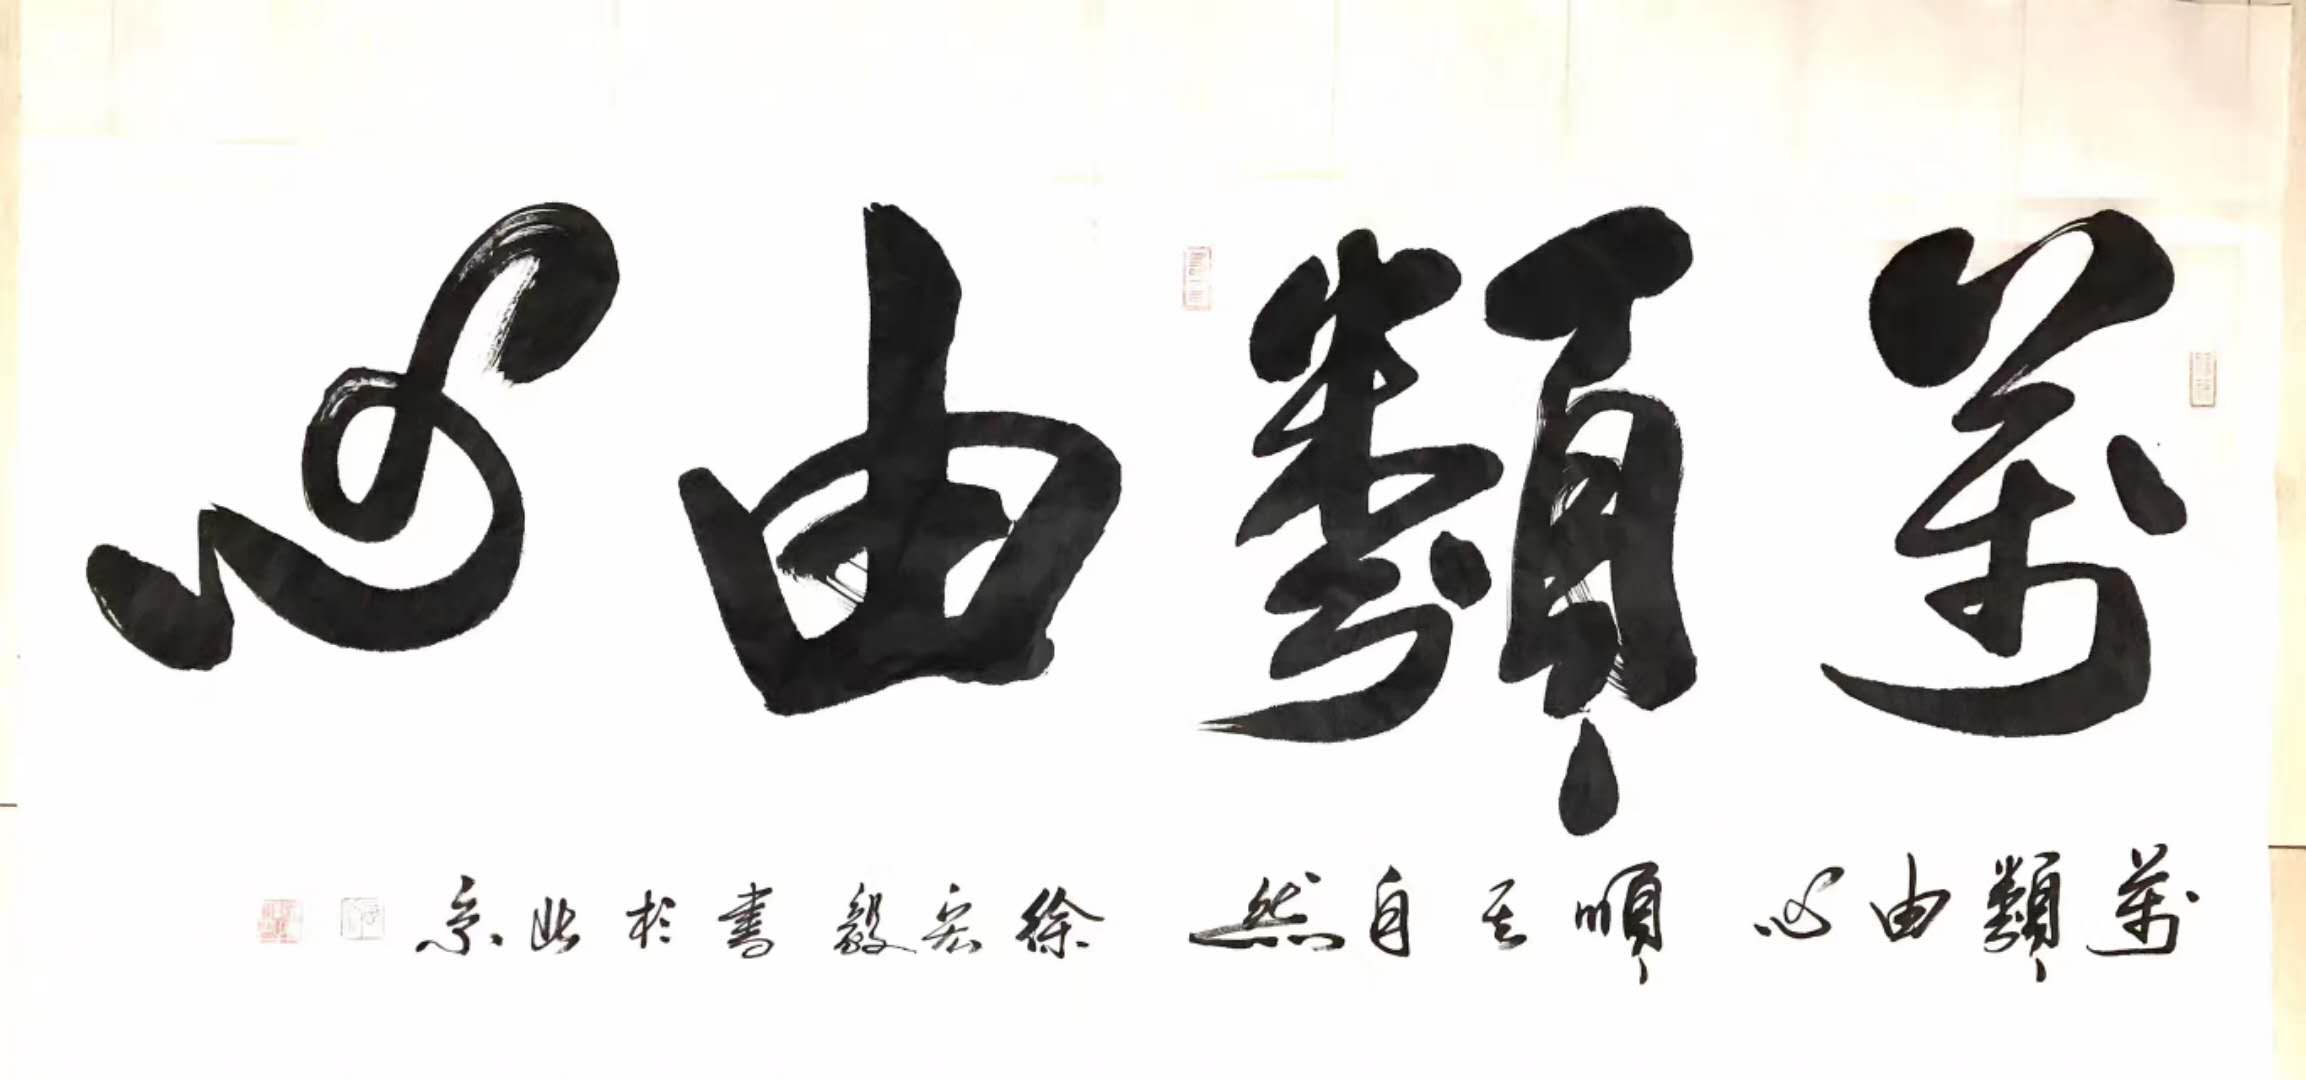 萬類由心
萬類由心 順其自然 徐宏毅書於北京